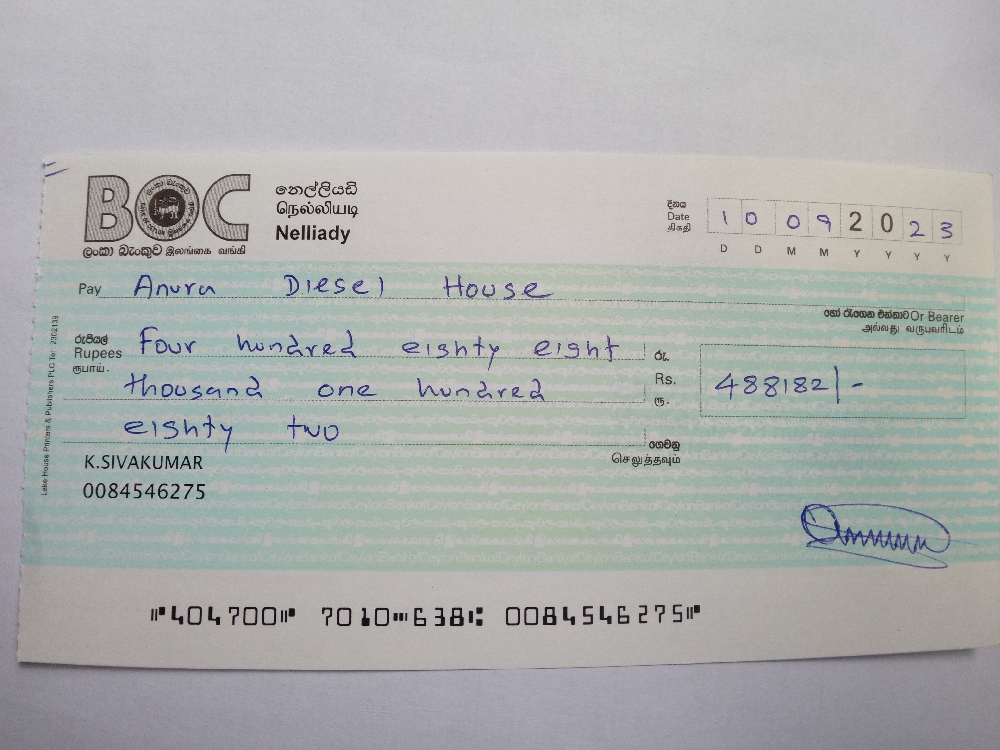 BOC
ලංකා බැංකුව இலங்கை வங்கி
නෙල්ලියඩි
நெல்லியடி
Nelliady
දිනය
Date
திகதி
1 0 0 9 2 0 2 3
D D M M Y Y Y Y
Pay Anura Diesel House
හෝ රැගෙන එන්නාට Or Bearer
அல்லது வருபவரிடம்
රුපියල්
Rupees
ரூபாய்.
Four hundred eishty eight
thousand one hundred
eishty two
රු.
Rs.
ரூ.
488182/-
ගෙවනු
செலுத்தவும்
K.SIVAKUMAR
0084546275
Lake House Printers & Publishers PLC Tel : 2302139
⑈404700⑈ 7010⑉638⑆ 0084546275⑈